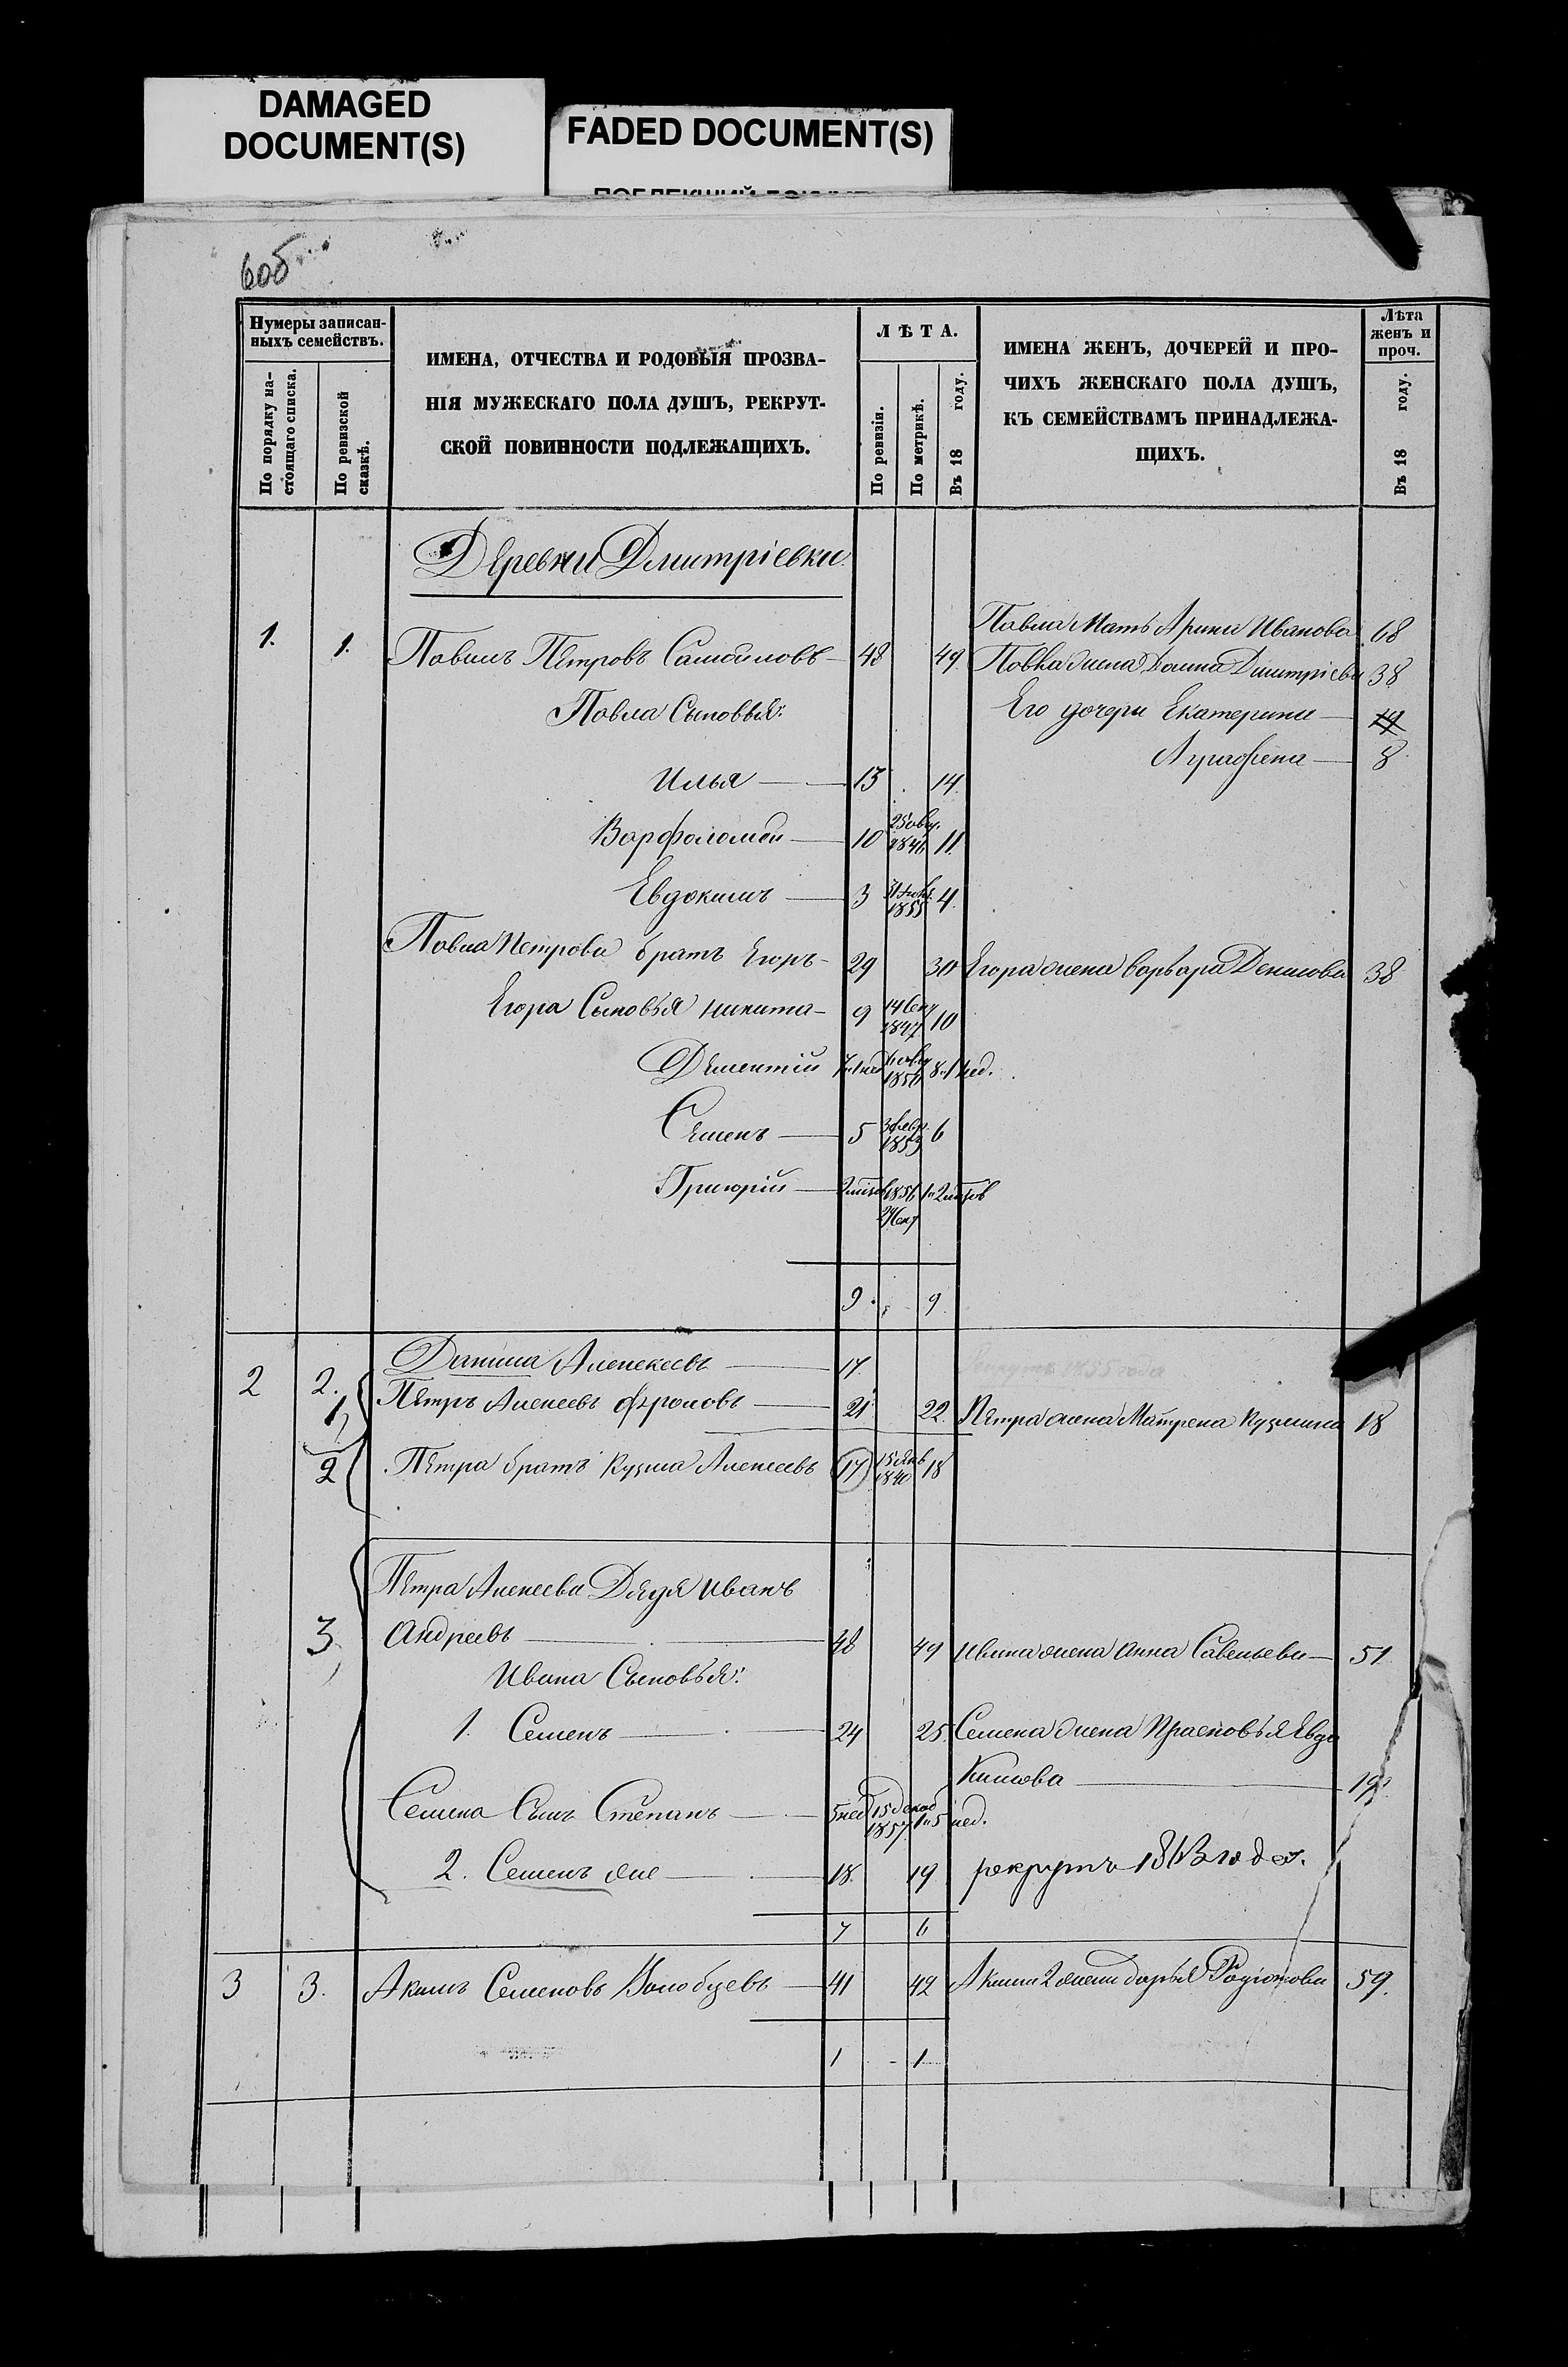 DAMAGED
DOCUMENT(S)
FADED DOCUMENT(S)
6об
Нумеры записан-
ныхъ семействъ.
По порядку на-
стоящаго списка.
По ревизской
сказкѣ.
ИМЕНА, ОТЧЕСТВА И РОДОВЫЯ ПРОЗВА-
НІЯ МУЖЕСКАГО ПОЛА ДУШЪ, РЕКРУТ-
СКОЙ ПОВИННОСТИ ПОДЛЕЖАЩИХЪ.
ЛѢТА.
По ревизіи.
По метрикѣ.
Въ 18 году.
ИМЕНА ЖЕНЪ, ДОЧЕРЕЙ И ПРО-
ЧИХЪ ЖЕНСКАГО ПОЛА ДУШЪ,
КЪ СЕМЕЙСТВАМЪ ПРИНАДЛЕЖА-
ЩИХЪ.
Лѣта
женъ и
проч.
Въ 18 году.
Деревни Дмитріевки
Павла Мать Арина Иванова 68
1. 1. Павелъ Петровъ Самойловъ 48 49 Павла жена Домна Дмитріева 38
Павла Сыновья: Его дочери Екатерина 19
Аграфена 8
Илья 13 14
Варфоломей 10 1846 11
Евдокимъ 3 1855 4
Павла Петрова братъ Егоръ 29 30 Егора жена Варвара Денисова 38
Егора Сыновья Никита 9 14 Сен 1847 10
Дементій 1856 нед.
Семенъ 5 3 февр. 1853 6
Григорій 1856
9 9
2 2. Данила Алексеевъ 17 1855 года
1 Петръ Алексеевъ Фроловъ 21 22 Петра жена Матрена Кузмина 18
2 Петра братъ Кузма Алексеевъ 17 15 Янв 1840 18
Петра Алексеева Дядя Иванъ
3 Андреевъ 48 49 Ивана жена Анна Савельева 51
Ивана Сыновья:
1. Семенъ 24 25 Семена жена Прасковья Евдо
кимова 19
Семена Сынъ Степанъ 5 нед 15 декаб 1857 1 и 5 нед.
2. Семенъ же 18 19 рекрутъ 1863 года.
7 6
3 3. Акимъ Семеновъ 41 42 Акима 2 жена Дарья Родіонова 59.
1 1